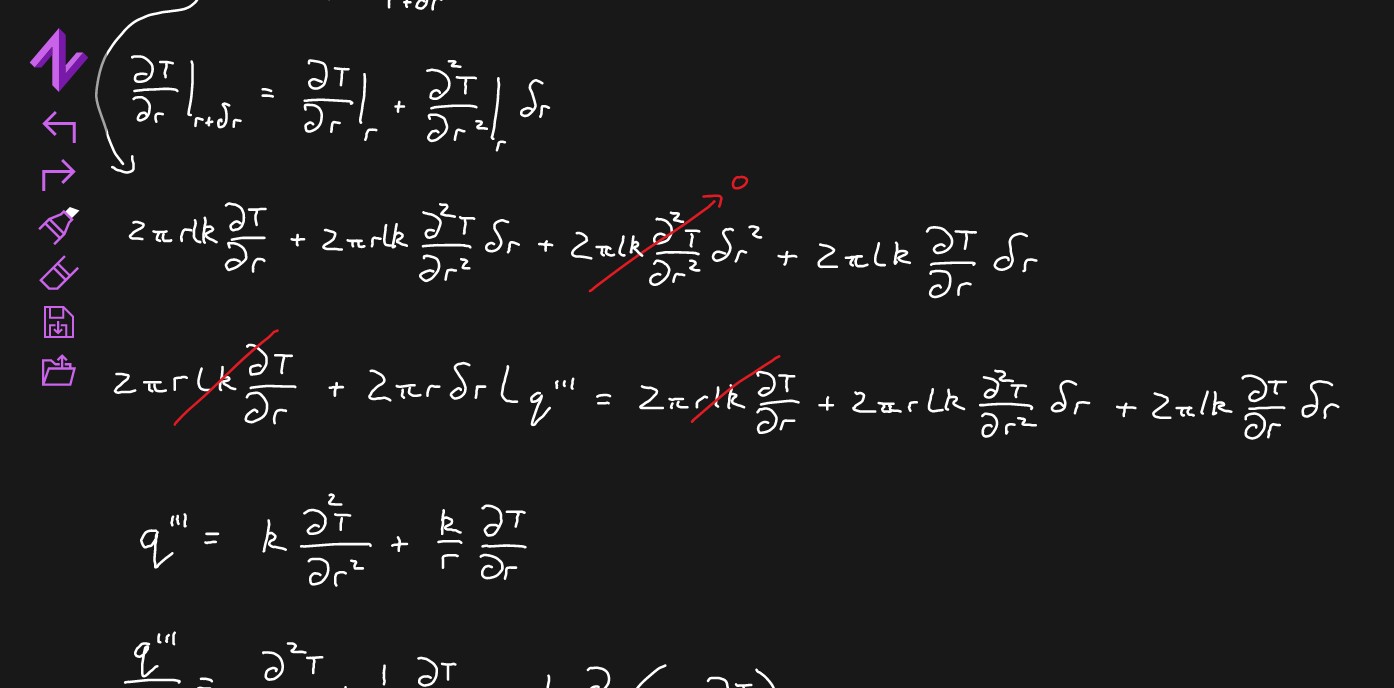 r+δr
∂T/∂r|r+δr = ∂T/∂r|r + ∂²T/∂r²|r δr
2πrlk ∂T/∂r + 2πrlk ∂²T/∂r² δr + 2πlk ∂²T/∂r² δr² → 0 + 2πLk ∂T/∂r δr
2πrLk ∂T/∂r + 2πrδrL q''' = 2πrlk ∂T/∂r + 2πrLk ∂²T/∂r² δr + 2πlk ∂T/∂r δr
q''' = k ∂²T/∂r² + k/r ∂T/∂r
q''' = ∂²T ∂T